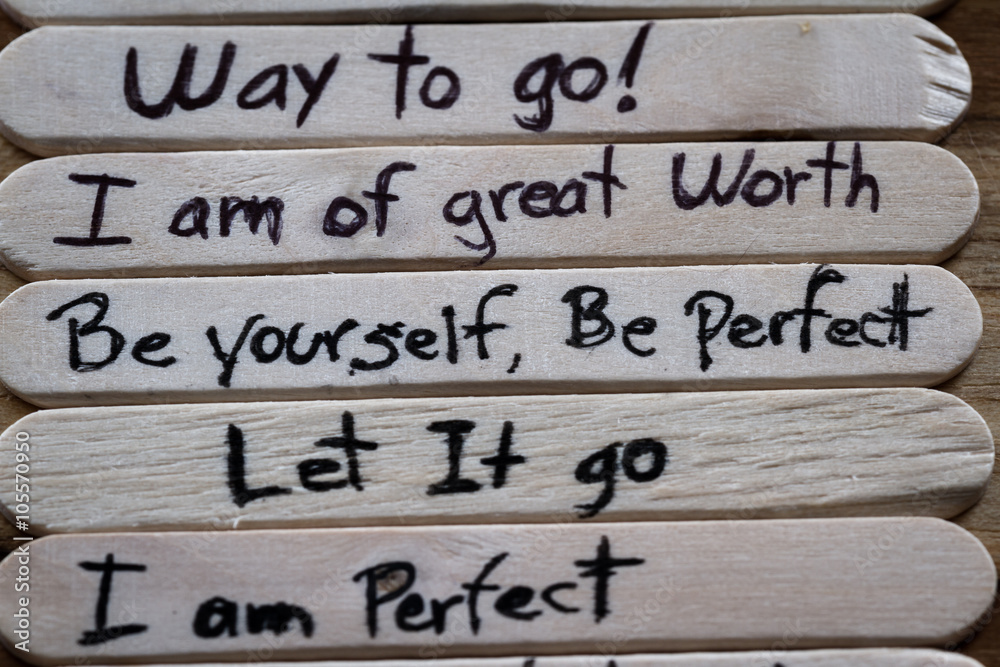 Way to go!
I am of great Worth
Be yourself, Be Perfect
Let It go
I am Perfect
Adobe Stock | #105570950